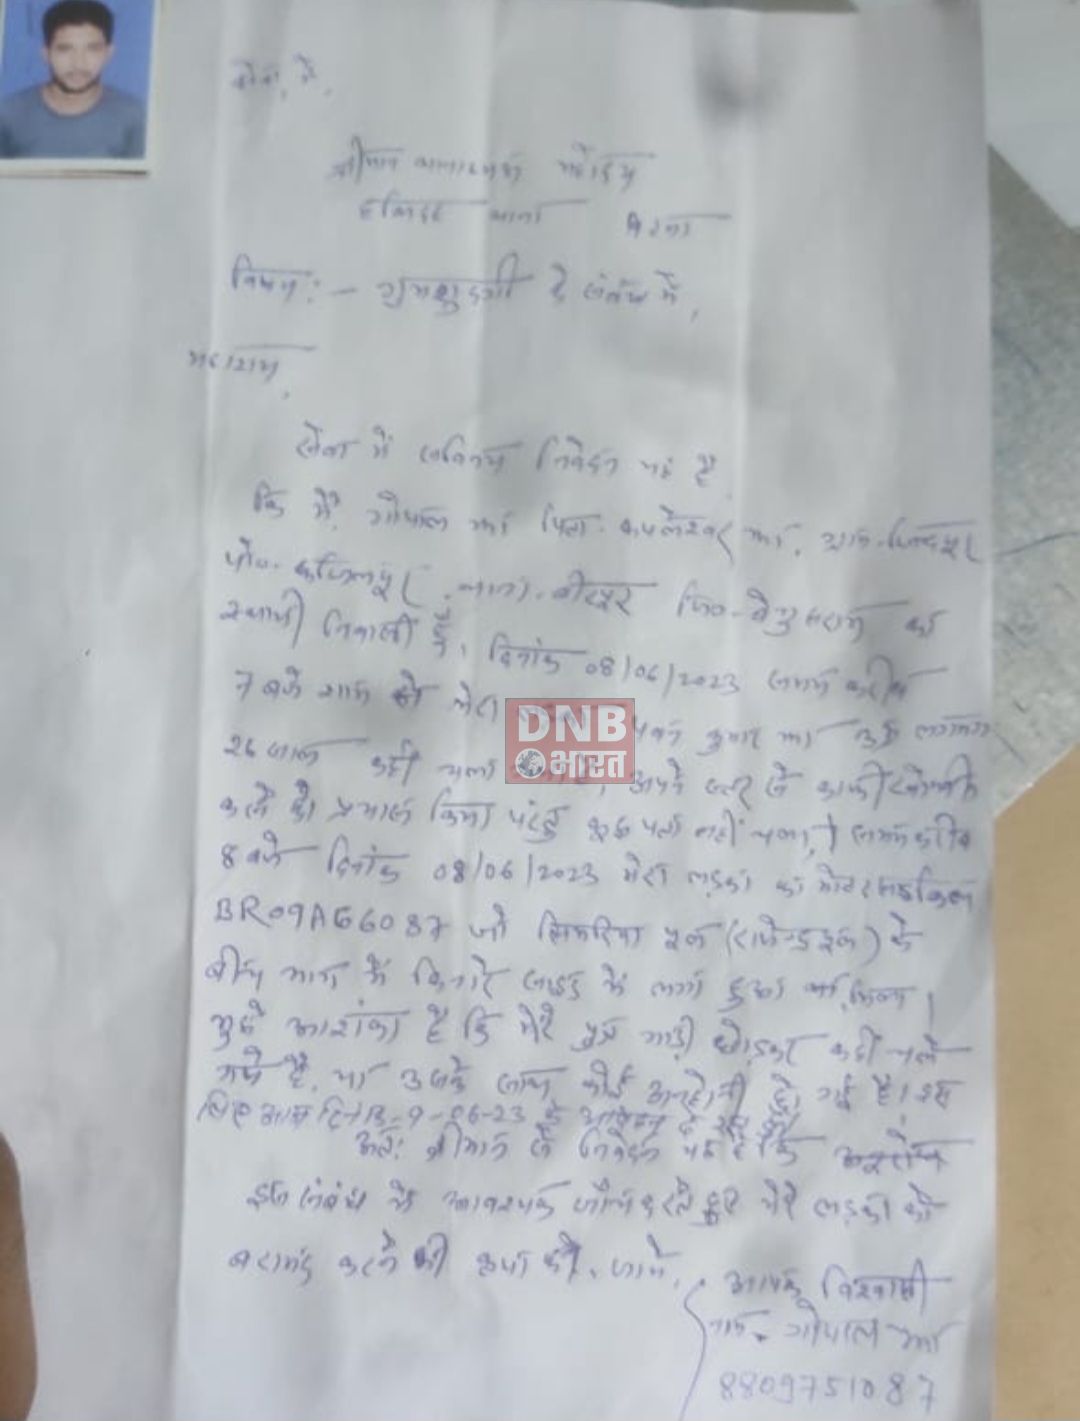 सेवा में,
श्रीमान थानाध्यक्ष महोदय
थाना
विषय:- गुमशुदगी के संबंध में,
महाशय,
सेवा में सविनय निवेदन यह है
कि मैं, गोपाल झा पिता- कपलेश्वर झा, ग्राम-
पो०- थाना- वीरपुर जि०-बेगुसराय का
स्थायी निवासी हूँ, दिनांक 08/06/2023 समय करीब
7 बजे शाम को मेरा लड़का कुमार झा उम्र लगभग
26 साल कहीं चला अपने स्तर से काफी खोजबीन
करने का प्रयास किया परंतु कुछ पता नहीं चला, समय करीब
8 बजे दिनांक 08/06/2023 मेरा लड़का का मोटरसाइकिल
BR09AG6087 जो सिमरिया पुल (राजेन्द्र पुल) के
बीच भाग में किनारे साइड में लगा हुआ था, मिला।
मुझे आशंका है कि मेरे पुत्र गाड़ी छोड़कर कहीं चले
गये हैं, या उसके साथ कोई अनहोनी हो गई है। इस
लिए आज दिनांक-9-06-23 को आवेदन दे रहा हूँ।
अतः श्रीमान से निवेदन यह है कि
इस संबंध में आवश्यक जाँच करते हुए मेरे लड़का को
बरामद करने की कृपा की जाये,
आपका विश्वासी
नाम- गोपाल झा
8809751087
DNB
भारत